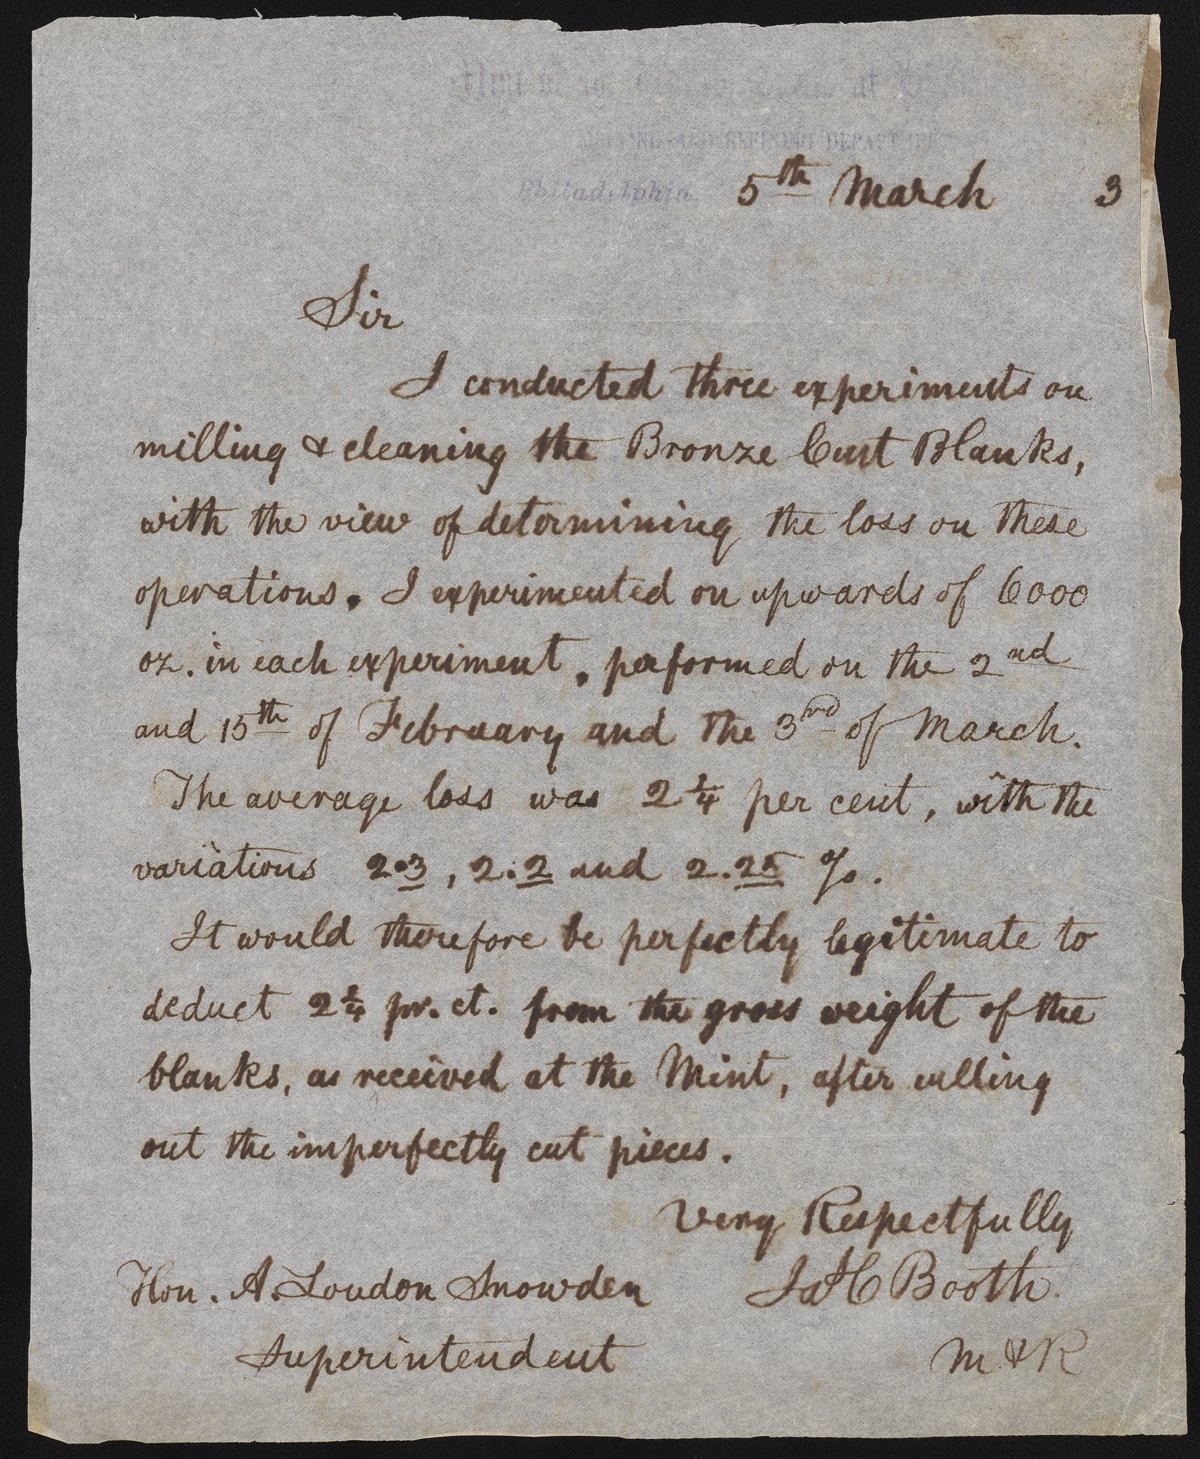 Mint of the United States at
MELTING AND REFINING DEPARTMENT
Philadelphia, 5th March 3
Sir
I conducted three experiments on
milling & cleaning the Bronze Cent Blanks,
with the view of determining the loss on these
operations. I experimented on upwards of 6000
oz. in each experiment, performed on the 2nd
and 15th of February and the 3rd of March.
The average loss was 2 1/4 per cent, with the
variations 2.3, 2.2 and 2.25 %.
It would therefore be perfectly legitimate to
deduct 2 1/4 pr. ct. from the gross weight of the
blanks, as received at the Mint, after culling
out the imperfectly cut pieces.
Very Respectfully
Hon. A. Loudon Snowden Jas H Booth.
Superintendent M & R